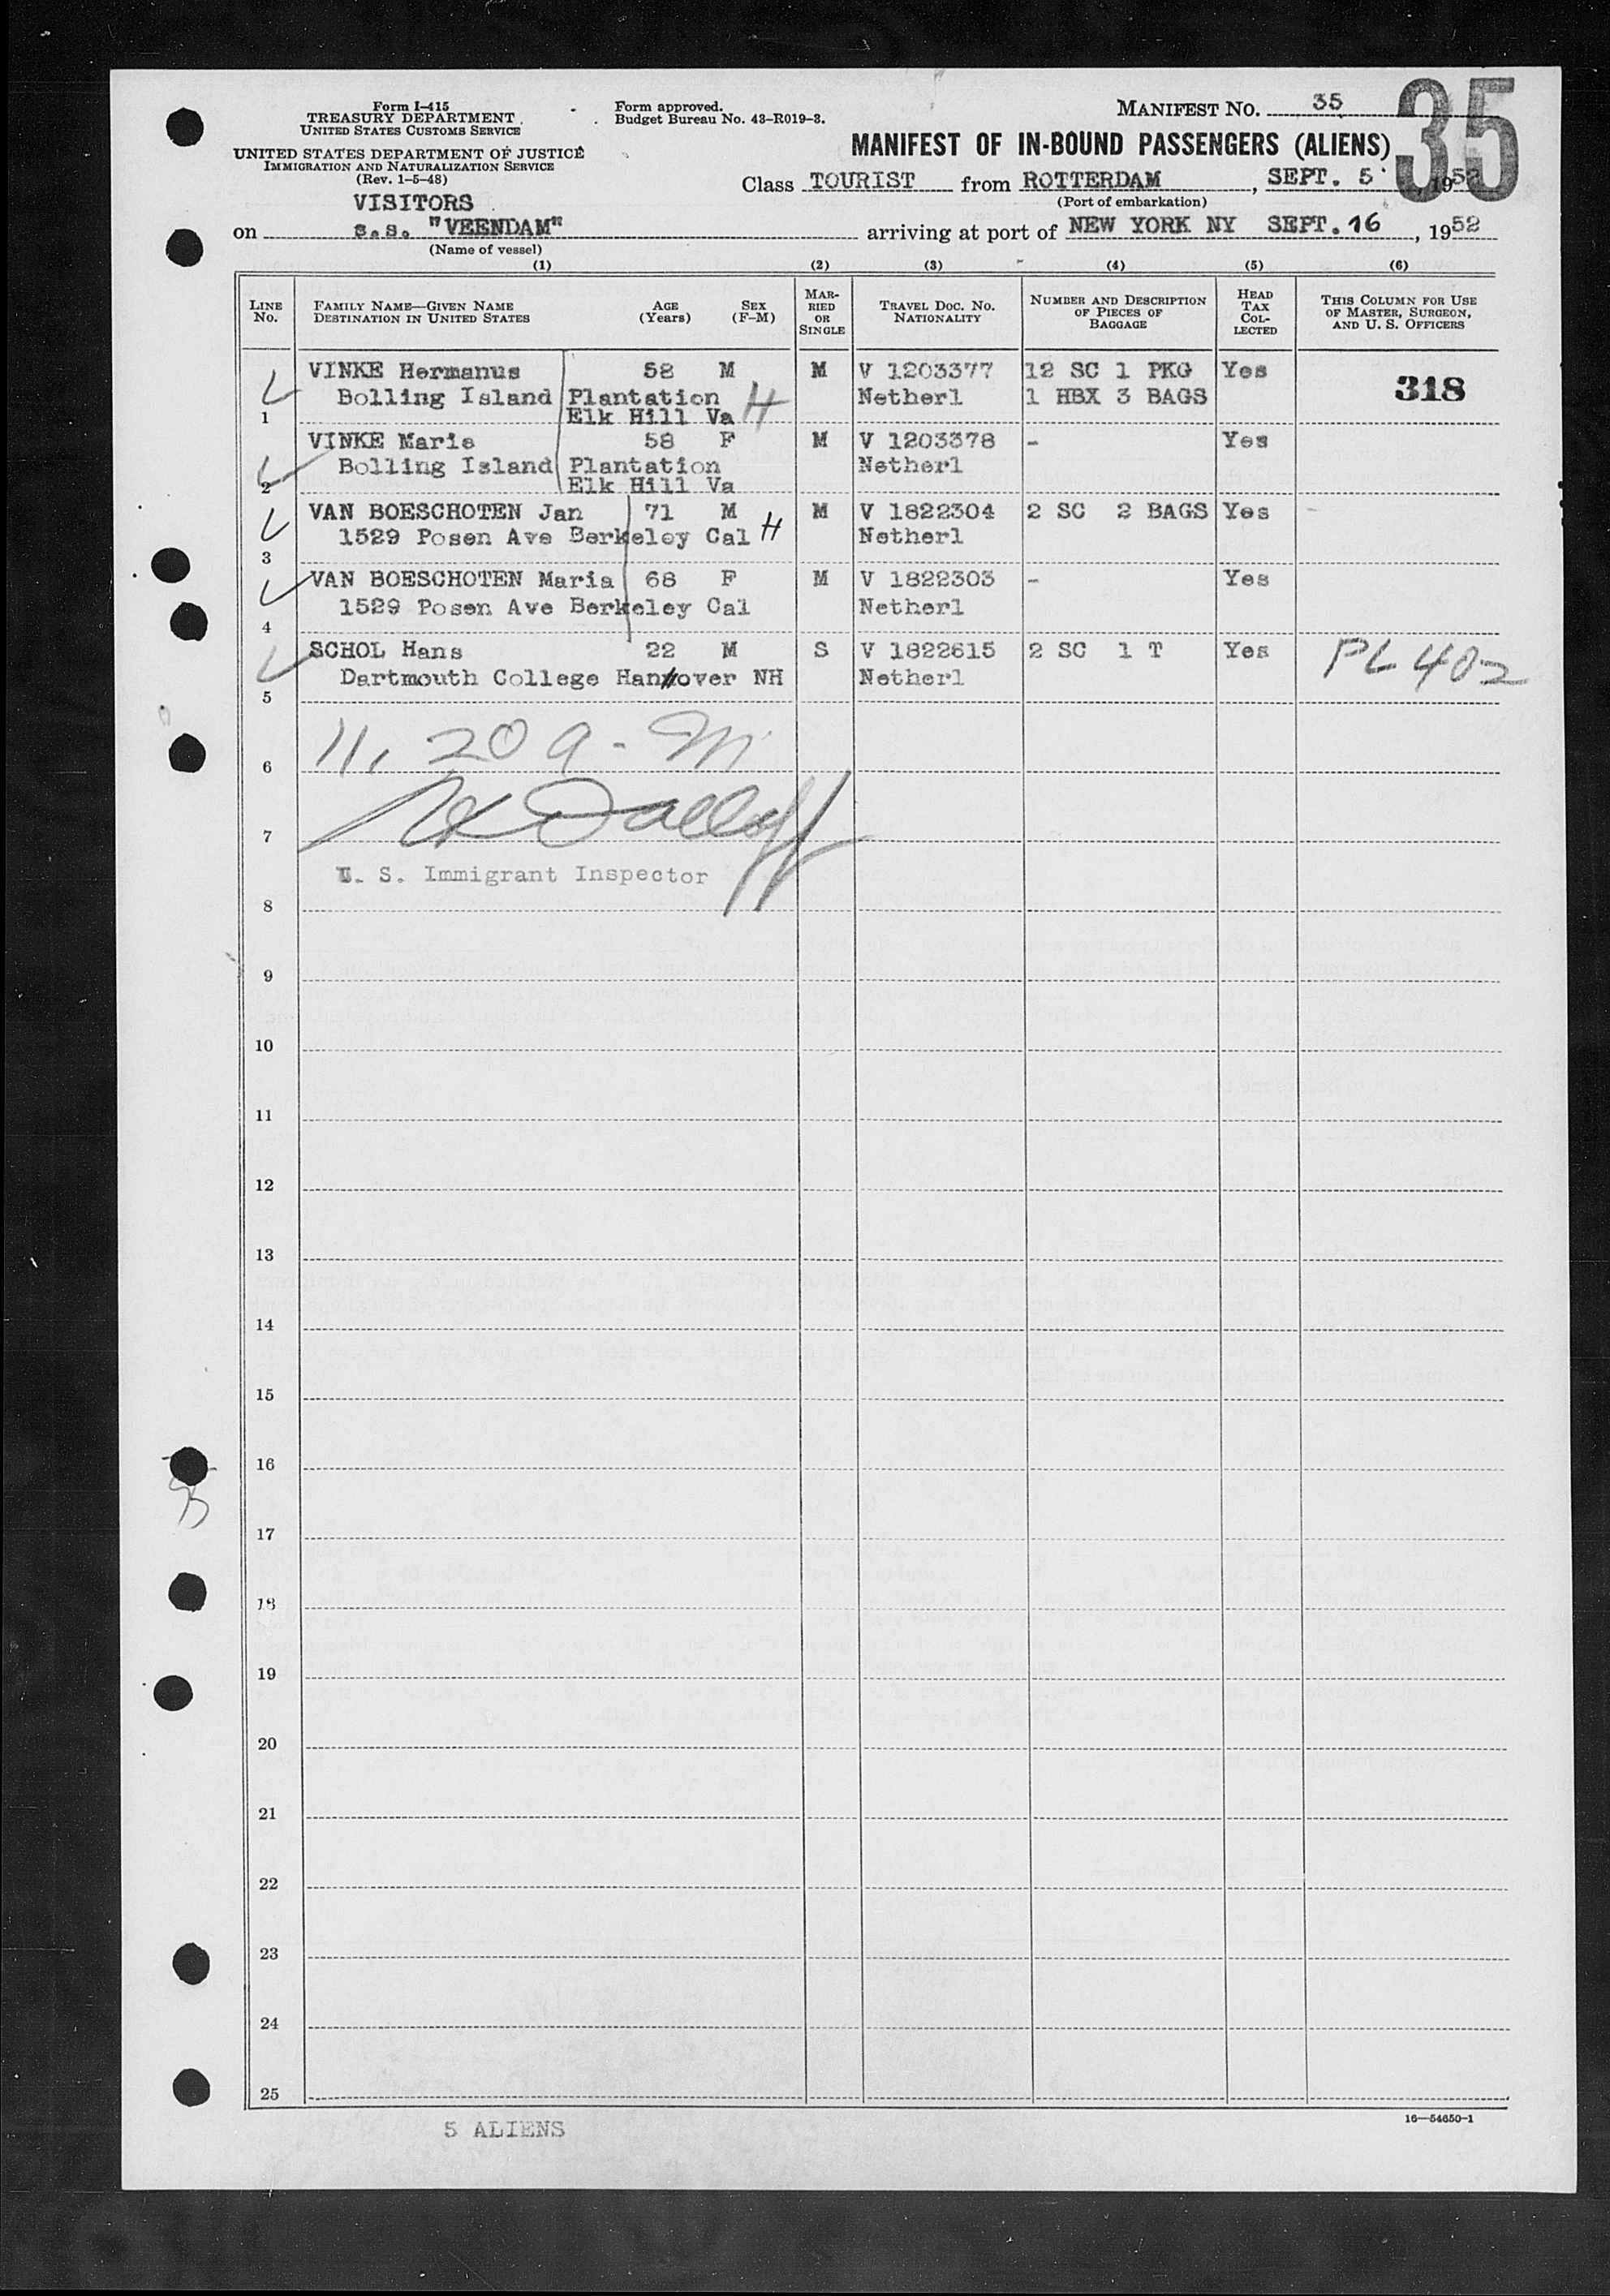 Form I-415
TREASURY DEPARTMENT
UNITED STATES CUSTOMS SERVICE
UNITED STATES DEPARTMENT OF JUSTICE
IMMIGRATION AND NATURALIZATION SERVICE
(Rev. 1-5-48)
Form approved.
Budget Bureau No. 43-R019-3.
MANIFEST No. 35
35
MANIFEST OF IN-BOUND PASSENGERS (ALIENS)
Class TOURIST from ROTTERDAM, SEPT. 5, 1952
(Port of embarkation)
VISITORS
on s.s. "VEENDAM" arriving at port of NEW YORK NY SEPT. 16, 1952
(Name of vessel)
(1) (2) (3) (4) (5) (6)
LINE No. FAMILY NAME—GIVEN NAME DESTINATION IN UNITED STATES AGE (Years) SEX (F-M) MARRIED OR SINGLE TRAVEL DOC. NO. NATIONALITY NUMBER AND DESCRIPTION OF PIECES OF BAGGAGE HEAD TAX COLLECTED THIS COLUMN FOR USE OF MASTER, SURGEON, AND U. S. OFFICERS
VINKE Hermanus 58 M M V 1203377 12 SC 1 PKG Yes 318
Bolling Island Plantation H Netherl 1 HBX 3 BAGS
1 Elk Hill Va
VINKE Marie 58 F M V 1203378 - Yes
Bolling Island Plantation Netherl
2 Elk Hill Va
VAN BOESCHOTEN Jan 71 M M V 1822304 2 SC 2 BAGS Yes
1529 Posen Ave Berkeley Cal H Netherl
3
VAN BOESCHOTEN Maria 68 F M V 1822303 - Yes
1529 Posen Ave Berkeley Cal Netherl
4
SCHOL Hans 22 M S V 1822615 2 SC 1 T Yes PL 402
Dartmouth College Hannover NH Netherl
5
6 11, 20 a-m
7
U. S. Immigrant Inspector
8
9
10
11
12
13
14
15
16
17
18
19
20
21
22
23
24
25
5 ALIENS
16—54650-1